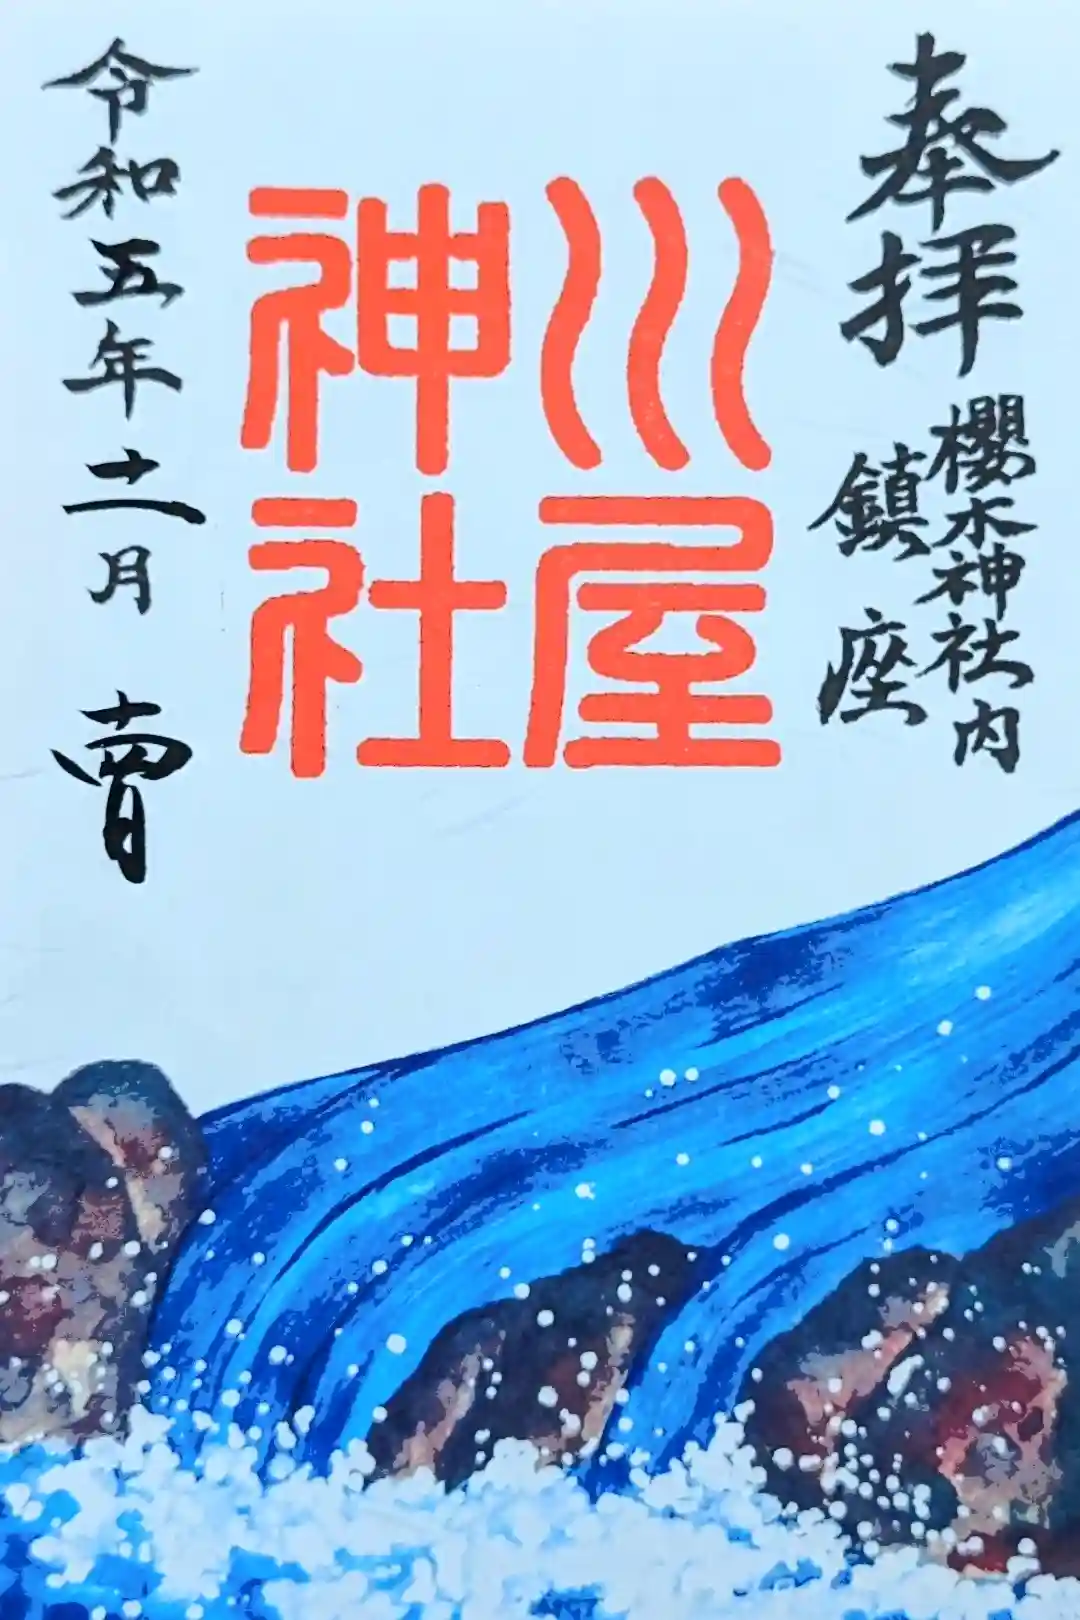 奉拝
櫻木神社内
鎮座
川屋
神社
令和五年十二月